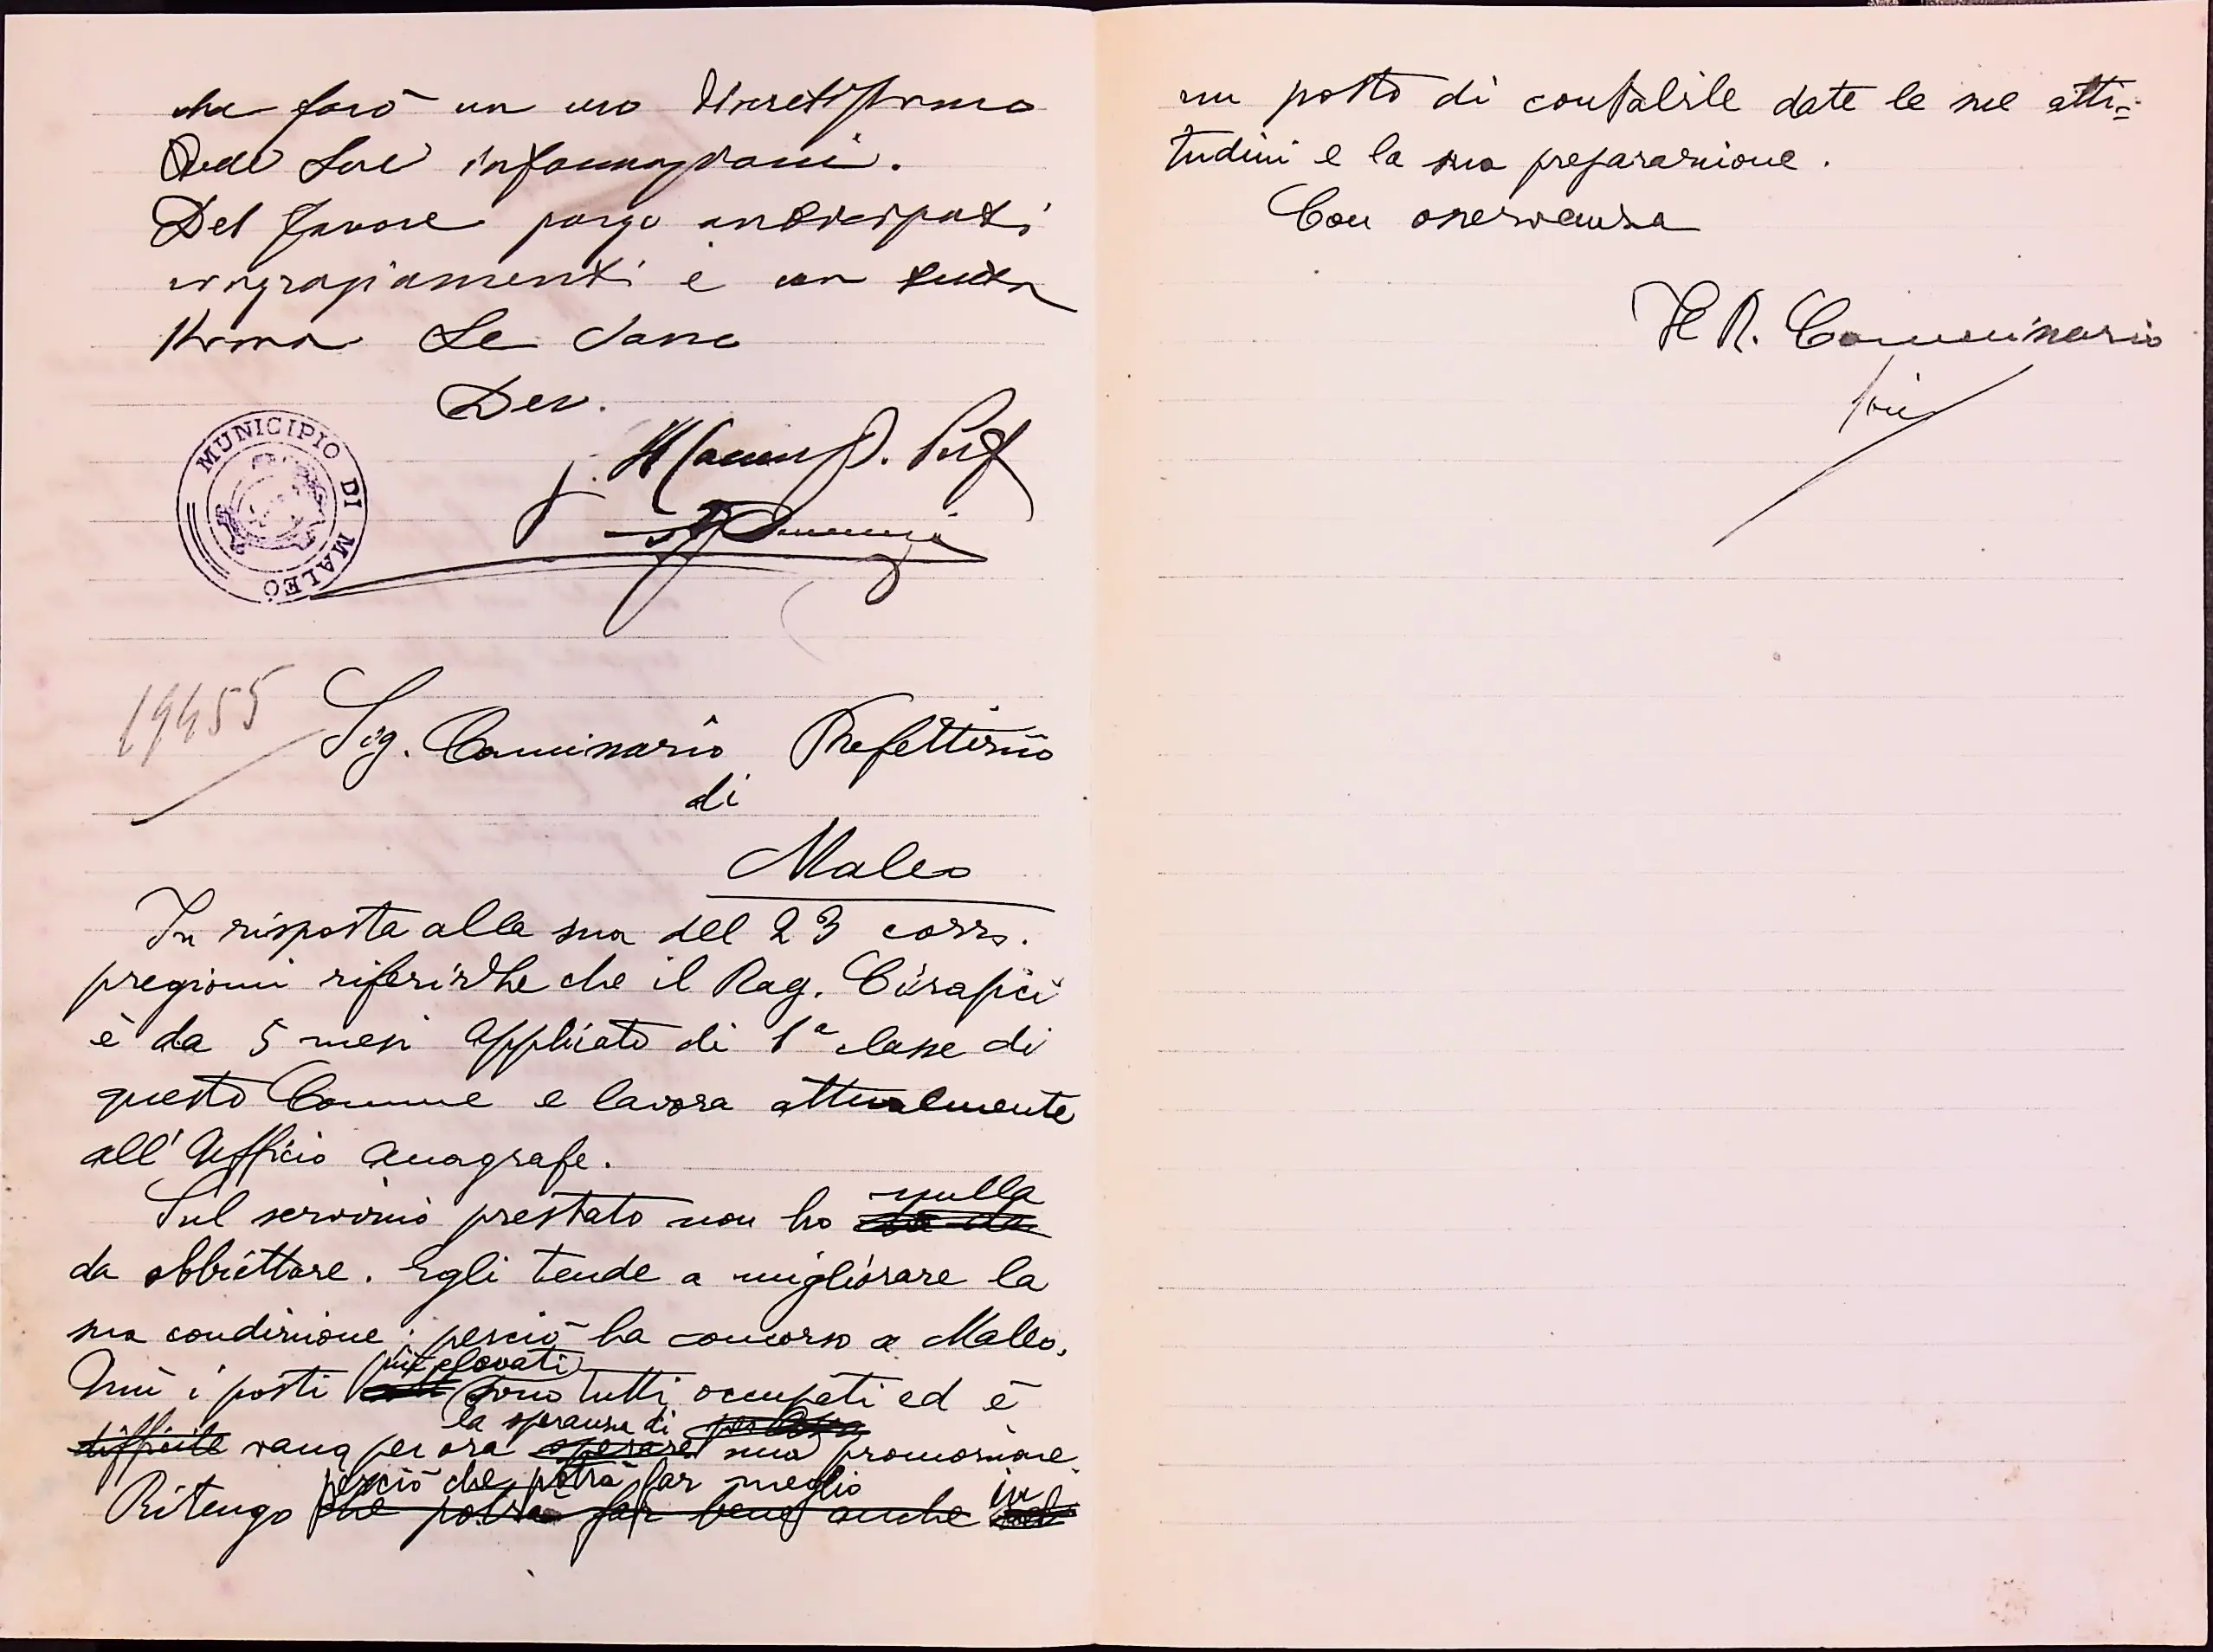 che farò un uso discretissimo
delle Sue informazioni.
Del favore porgo anticipati
ringraziamenti e con tutta
stima La saluto
Dev.
Il Comm. P. Pref
MUNICIPIO DI MALEO
19455
Sig. Commissario Prefettizio
di
Maleo
In risposta alla sua del 23 corr.
pregiomi riferirLe che il Rag. Cirapici
è da 5 mesi applicato di 1ª classe di
questo Comune e lavora attualmente
all'Ufficio Anagrafe.
nulla
Sul servizio prestato non ho
da obbiettare. Egli tende a migliorare la
sua condizione; perciò ha concorso a Maleo.
più elevati
Qui i posti sono tutti occupati ed è
la speranza di per Lora
difficile vana per ora sperare una promozione.
perciò che potrà far meglio in
Ritengo che potrà far bene anche
un posto di contabile date le sue atti=
tudini e la sua preparazione.
Con osservanza
Il R. Commissario